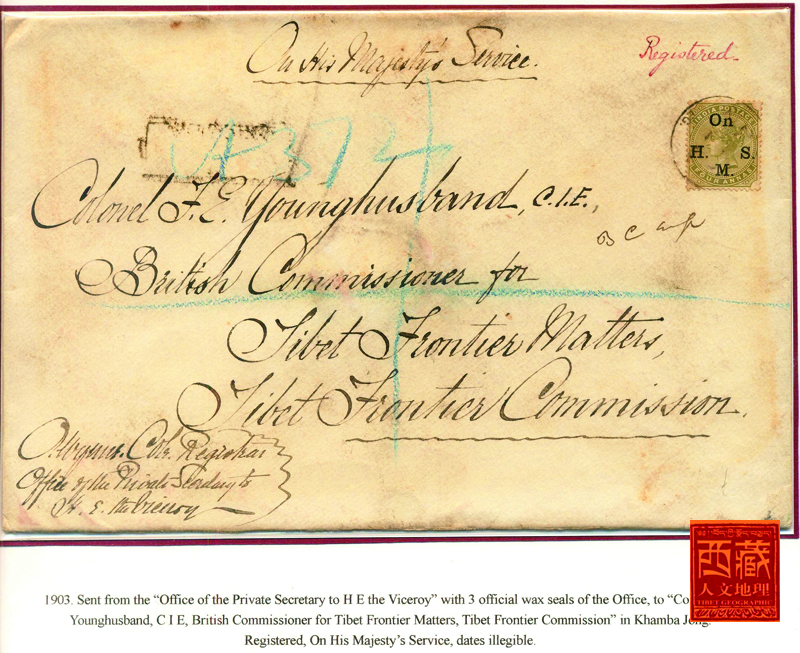 On His Majesty's Service.
Registered.
INDIA POSTAGE
On
H. S.
M.
FOUR ANNAS
A 374
Colonel F. E. Younghusband, C.I.E.,
British Commissioner for
Tibet Frontier Matters,
Tibet Frontier Commission.
Registrar
Office of the Private Secretary to
H. E. the Viceroy
西藏
人文地理
TIBET GEOGRAPHIC
1903. Sent from the “Office of the Private Secretary to H E the Viceroy” with 3 official wax seals of the Office, to “Co
Younghusband, C I E, British Commissioner for Tibet Frontier Matters, Tibet Frontier Commission” in Khamba Jong.
Registered, On His Majesty’s Service, dates illegible.